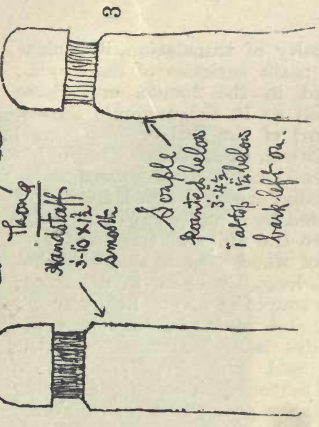 3
Thong
Handstaff
3-10 x 1½
Smooth
Souple
pointed below
3-4½
1 at top below
bark left on.